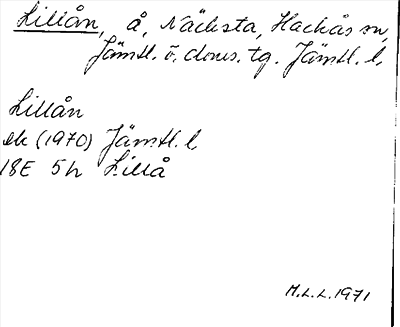 Lillån, å, Näcksta, Hackås sn,
Jämtl. ö. doms. tg. Jämtl. l.
Lillån
ek (1970) Jämtl. l
18E 5h Lillå
M.L.L. 1971